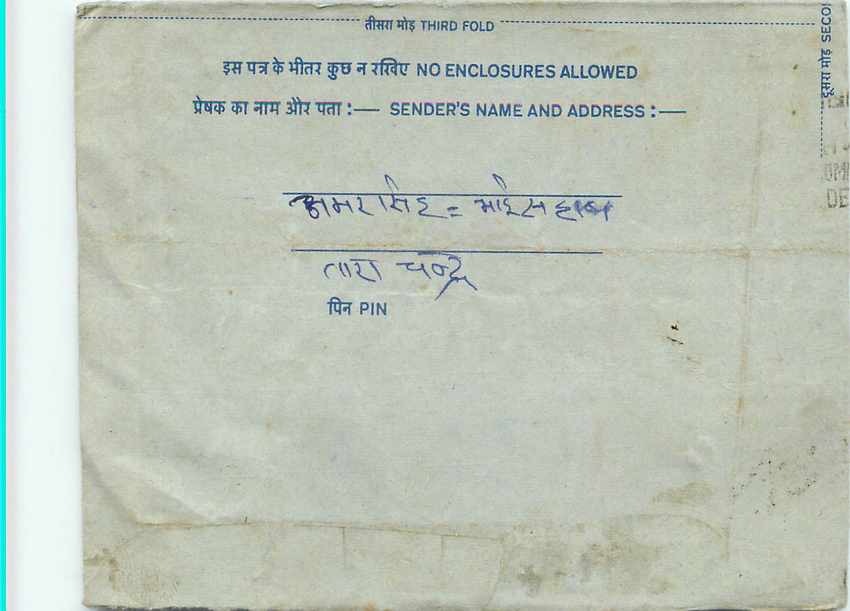 तीसरा मोड़ THIRD FOLD
इस पत्र के भीतर कुछ न रखिए NO ENCLOSURES ALLOWED
प्रेषक का नाम और पता :— SENDER'S NAME AND ADDRESS :—
अमरसिह = भाईसहाब
तारा चन्द्र
पिन PIN
दूसरा मोड़ SECO